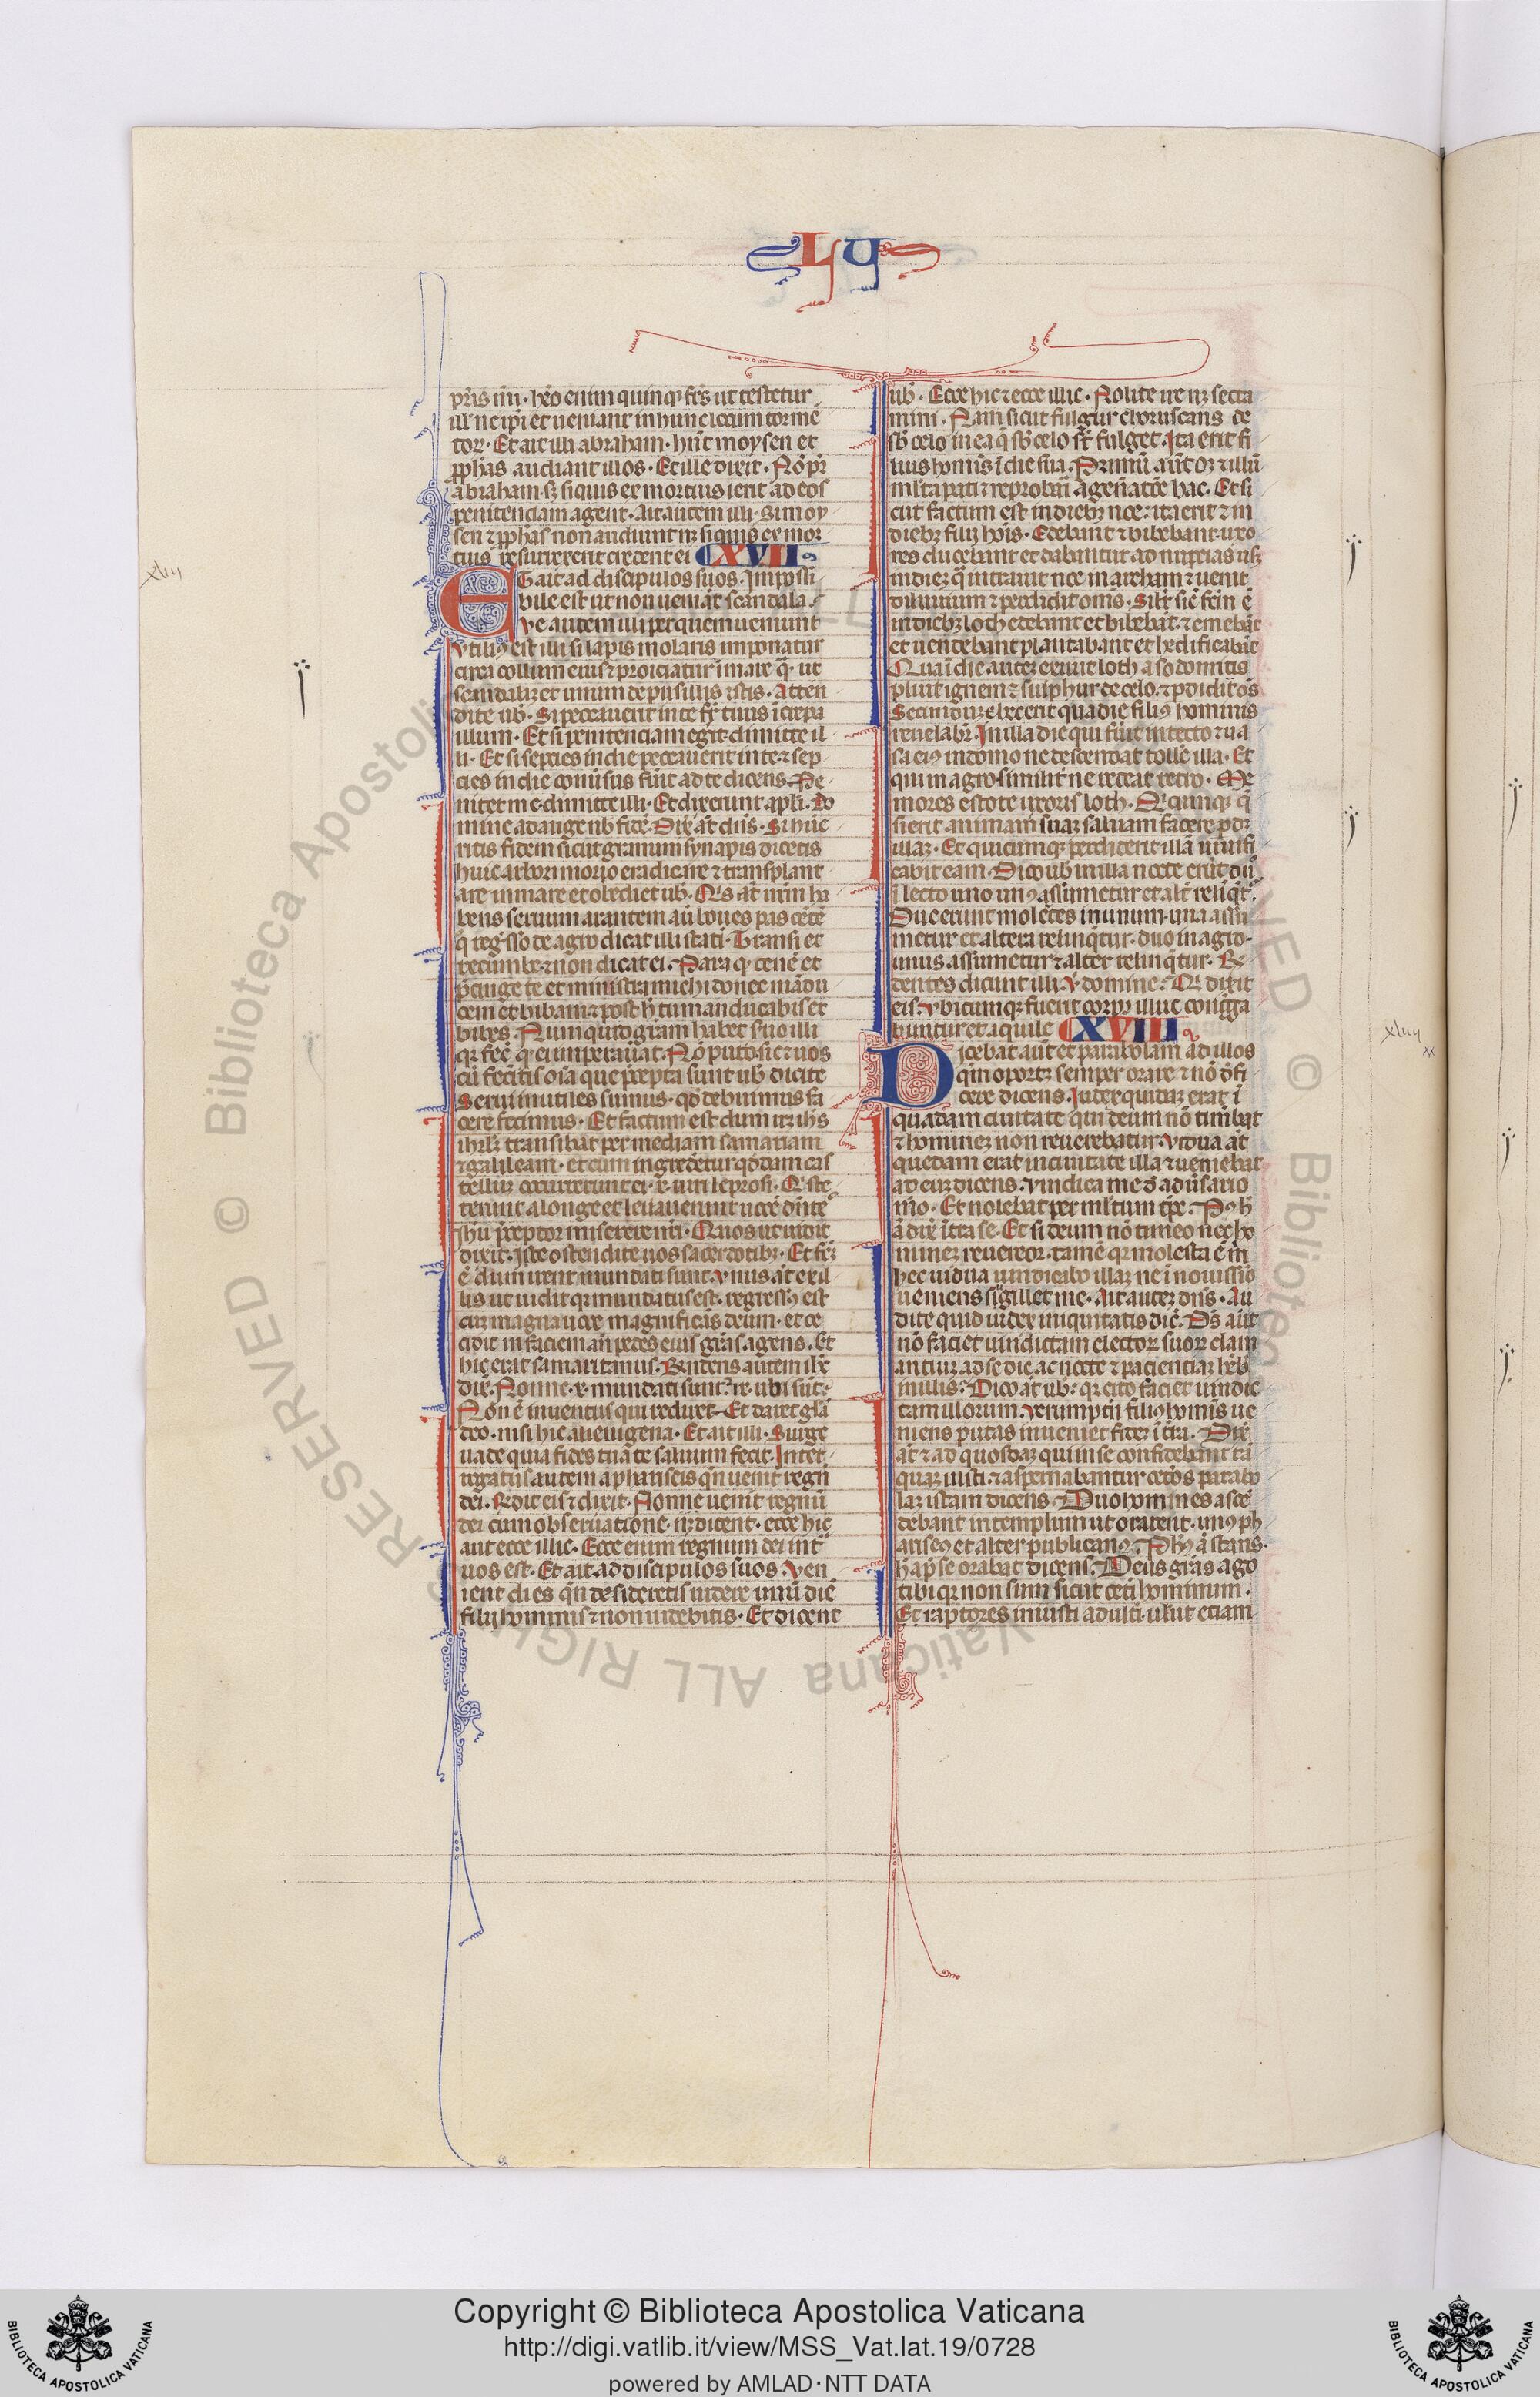 LU
pr̄is mi. hēo enim quinq; fr̄s ut testetur
ill̄ ne ip̄i et ueniant in hunc locum tormē
tor. Et ait illi abraham. hn̄t moysen et
ꝓphās audiant illos. Et ille dixit. Nō pr̄
abraham. sꝫ siquis ex mortuis ierit ad eos
penitenciam agent. Ait autem illi. Si moy
sen ⁊ ꝓphās non audiunt nꝫ siquis ex mor
tuis resurrexerit credent ei CXVII
ET ait ad discipulos suos. Impossi
bile est ut non ueniāt scandala.
Ve autem illi per quem ueniunt
Vtiliꝰ est illi si lapis molaris imponatur
circa collum eius ⁊ proiciatur ī mare q̄. ut
scandalizet unum de pusillis istis. Atten
dite uob̄. Si peccauerit in te fr̄ tuus īcrepa
illum. Et si penitenciam egit. dimitte il
li. Et si sepcies in die peccauerit in te. ⁊ sep
cies in die conūsus fūit ad te dicens. Pe
nitet me. dimitte illi. Et dixerunt apl̄i. Do
mine adauge nob̄ fidē. Dix̄ at̄ dn̄s. Si hūe
ritis fidem sicut granum synapis dicetis
huic arbori moro eradicare ⁊ transplant
are in mare et obediet uob̄. Qīs at̄ ur̄m ha
bens seruum arantem aū boues pascētē
q̄ regs̄so de agro dicat illi stati. Transi et
recumbe. ⁊ non dicat ei. Para q. cenē et
p̄cinge te et ministra michi donec mādu
cem et bibam ⁊ post h̄ tu manducabis et
bibes. Nunquid grām habet s̄uo illi
qꝛ fec̄ q̄ ei imperauat. Nō puto. sic ⁊ uos
cū fec̄itis oīa que p̄cepta sunt uob̄ dicite
Serui inutiles sumus. qd̄ debuimus fa
cere fecimus. Et factum est dum iꝫ ih̄s
ihr̄lꝫ transibat per mediam samariam
⁊ galileam. et cum ingredet̄ur qd̄dam cas
tellum occurrerunt ei .x. uiri leprosi. Q̄ ste
terunt a longe et leuauerunt uocē dn̄te
ih̄u p̄ceptor miserere nr̄i. Quos ut uidit
dixit. Iste ostendite uos sacerdotibꝫ. Et fc̄ꝫ
ē dum irent mundati sunt. Vnus at̄ ex il
lis ut uidit qꝛ mundatus est. regressꝰ est
cum magna uoce magnificās deum. et ce
cidit in faciem an̄ pedes eius grās agens. Et
hic erat samaritanus. Rn̄dens autem ih̄c
dix̄. Nonne .x. mundati sunt. ⁊ .ix. ubi sūt.
Non ē inuentus qui rediret. Et daret glā
deo. nisi hic alienigena. Et ait illi. Surge
uade quia fides tua te saluum fecit. Inter
rogatus autem a pharisceis qn̄ uenit regn̄
dei. Rn̄dit eis ⁊ dixit. Nonne uenit regnū
dei cum obseruatione. nꝫ dicent. ecce hic
aut ecce illic. Ecce enim regnum dei int̄
uos est. Et ait ad discipulos suos. Ven
ient dies qn̄ desideretis uidere unū diē
filij hominis ⁊ non uidebitis. Et dicent
uob̄. Ecce hic ⁊ ecce illic. Nolite ire nꝫ secta
mini. Nam sicut fulgur choruscans de
sb̄ celo in ea q̄ sb̄ celo st̄ fulget. Ita erit fi
lius homīs ī die sua. Primū aūt oꝫ ⁊ illū
ml̄ta pati ⁊ reprobari a gen̄atōe hac. Et si
cut factum est in diebꝫ noe. ita erit ⁊ in
diebꝫ filij hoīs. Edebant ⁊ bibebant. uxo
res ducebant et dabantur ad nupcias usꝫ
in diem q̄ intrauit noe in archam ⁊ uenit
diluuium ⁊ perdidit om̄s. Silr̄ sic̄ fc̄m ē
in diebꝫ loth edebant et bibebāt. ⁊ emebāt
et uendebant plantabant et hedificabāt
Qua ī die autem exiuit loth a sodomitis
pluit ignem ⁊ sulphur de celo. ⁊ p̄didit oēs
Secundum hec erit qua die filiꝰ hominis
reuelabr̄. In illa die qui fūit in tecto ⁊ ua
sa eiꝰ in domo ne descendat tolle illa. Et
qui in agro similit̄ ne redeat retro. Me
mores estote uxoris loth. Q̄cumqꝫ q̄
sierit animam suam saluam facere pdꝫ
illam. Et quicumqꝫ perdiderit illā uiuifi
cabit eam. Dico uob̄ in illa nocte erūt duo
ī lecto uno unꝰ assumetur et alt̄ relinq̄t.
Due erunt molētes in unum. una assu
metur et altera relinq̄tur. duo in agro.
unus assumetur ⁊ alter relinq̄tur. Rn̄
dentes dicunt illi. v̄ domine. Q̄ dixit
eis. Vbicumqꝫ fuerit corpꝰ illuc congga
buntur et aquile CXVIII
Dicebat aūt et parabolam ad illos
qm̄ oportꝫ semper orare ⁊ nō dēfi
cere dicens. Iudex quidam erat ī
quadam ciuitate qui deum nō timebat
⁊ hominem non reuerebatur. Vidua at̄
quedam erat in ciuitate illa ⁊ ueniebat
ad eum dicens. Vindica me d̄ adūsario
mō. Et nolebat per ml̄tum tp̄e. Pꝰ h̄
ā dix̄ īt̄ra se. Et si deum nō timeo nec ho
minem reuereor. tamē qꝛ molesta ē m̄
hec uidua uindicabo illam ne ī nouissīo
ueniens sigillet me. Ait autem dn̄s. Au
dite quid iudex iniquitatis dic̄. Ds̄ aūt
nō faciet uindictam electoꝝ suoꝝ clam
antium ad se die ac nocte ⁊ pacienciam hēb̄
in illis. Dico at̄ uob̄. qꝛ cito faciet uindic
tam illorum. Verumptn̄ filiꝰ homīs ue
niens putas inueniet fidem ī tr̄a. Dix̄
at̄ ⁊ ad quosdam qui in se confidebant tā
quam iusti ⁊ asp̄ernabantur cet̄os parabo
lam istam dicens. Duo homines ascē
debant in templum ut orarent. unꝰ ph
ariseꝰ et alter publicanꝰ. Phꝰ ā stans.
h̄ ap̄ se orabat dicens. Deus grās ago
tibi qꝛ non sum sicut cet̄i hominum.
Et raptores iniusti adult̄i. uł ut etiam
xvii
xviii
xx
Copyright © Biblioteca Apostolica Vaticana
http://digi.vatlib.it/view/MSS_Vat.lat.19/0728
powered by AMLAD·NTT DATA
BIBLIOTECA APOSTOLICA VATICANA
BIBLIOTECA APOSTOLICA VATICANA